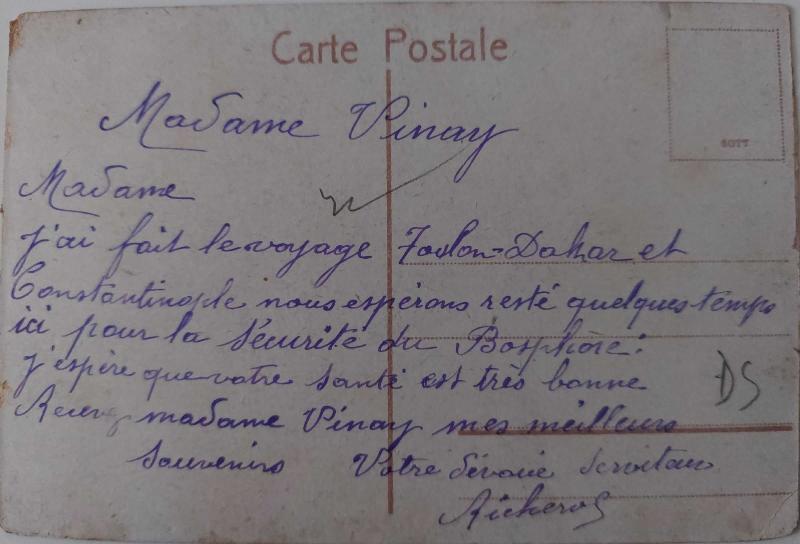 Carte Postale
Madame Vinay
Madame
j'ai fait le voyage Toulon-Dakar et
Constantinople nous espérons resté quelques temps
ici pour la sécurité du Bosphore.
j'espère que votre santé est très bonne
madame Vinay mes meilleurs
souvenirs Votre dévoué serviteur
DS